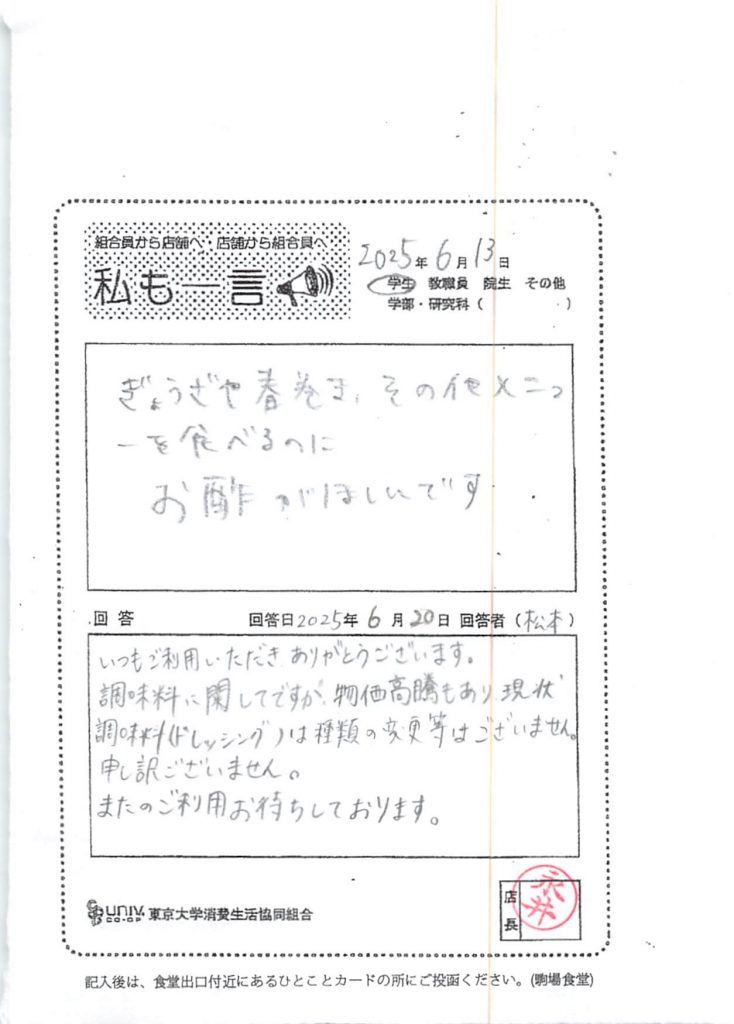 組合員から店舗へ・店舗から組合員へ
私も一言
2025年6月13日
学生 教職員 院生 その他
学部・研究科（ ）
ぎょうざや春巻き、その他メニュ
ーを食べるのに
お酢がほしいです
回答 回答日2025年6月20日 回答者（松本）
いつもご利用いただきありがとうございます。
調味料に関してですが、物価高騰もあり、現状
調味料(ドレッシング)は種類の変更等はございません。
申し訳ございません。
またのご利用お待ちしております。
UNIV.
CO-OP
東京大学消費生活協同組合
店長
永井
記入後は、食堂出口付近にあるひとことカードの所にご投函ください。(駒場食堂)